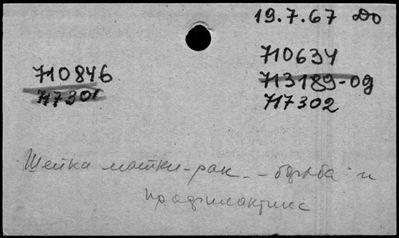 19.7.67 До
710634
710846
713189-09
717301
717302
Шейка матки-рак - борьба и
профилактика